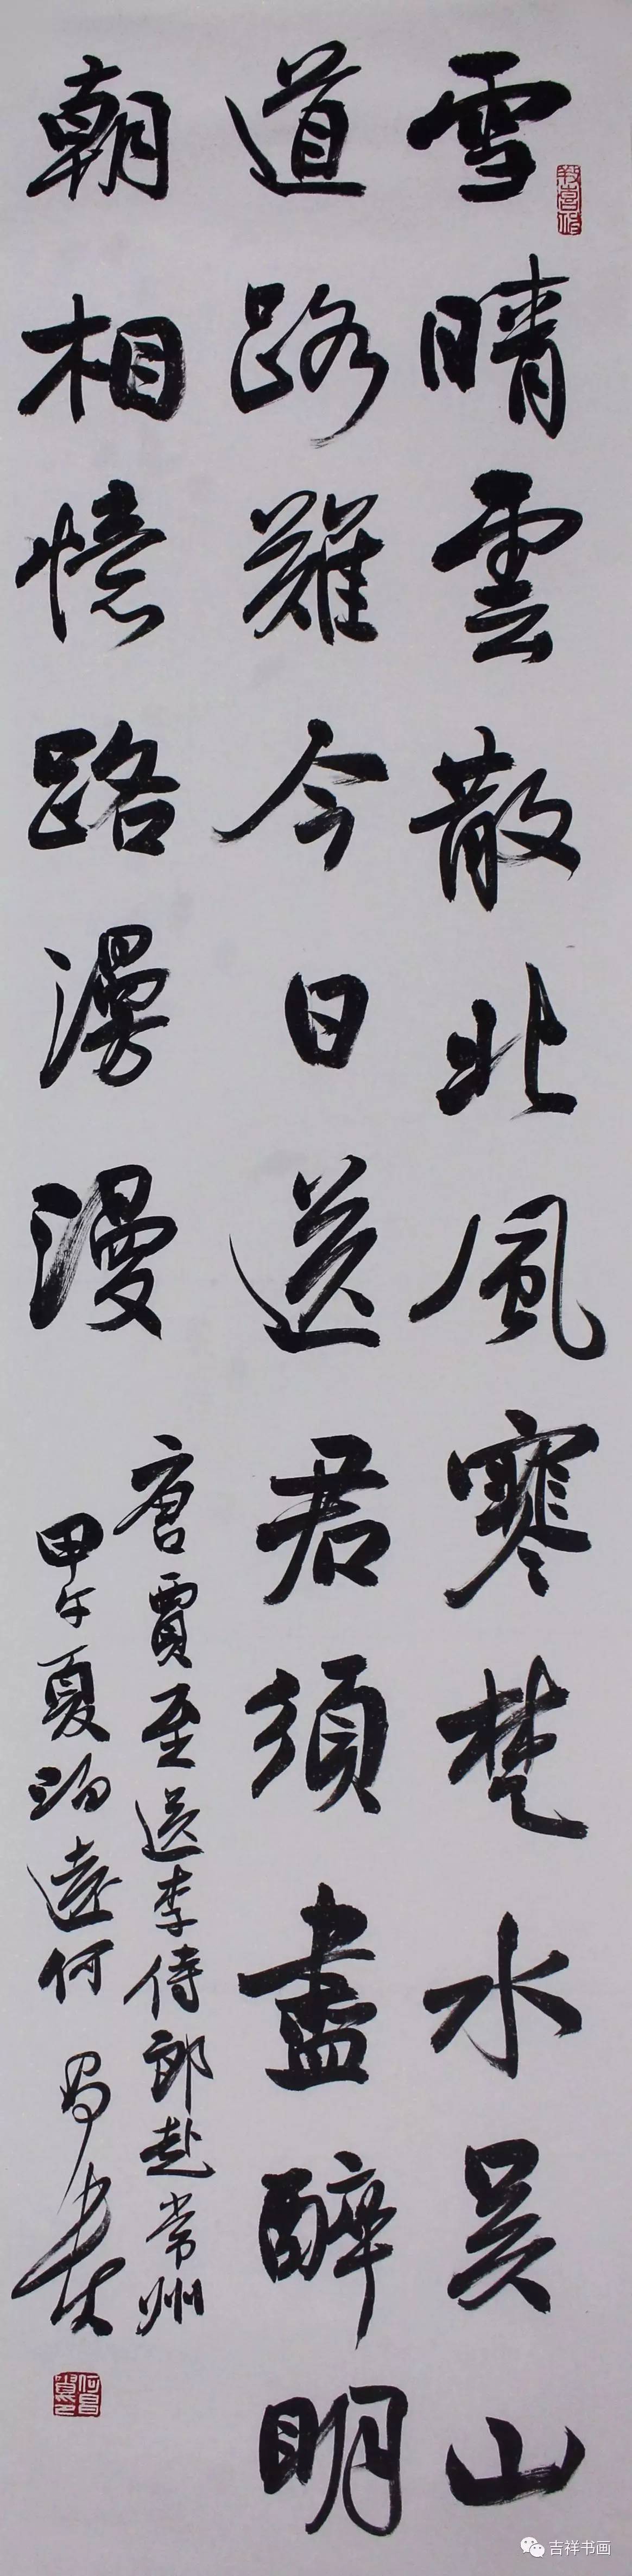 雪晴雲散北風寒楚水吴山
道路難今日送君須盡醉明
朝相憶路漫漫
唐賈至送李侍郎赴常州
甲午夏泊遠何昌貴
吉祥书画